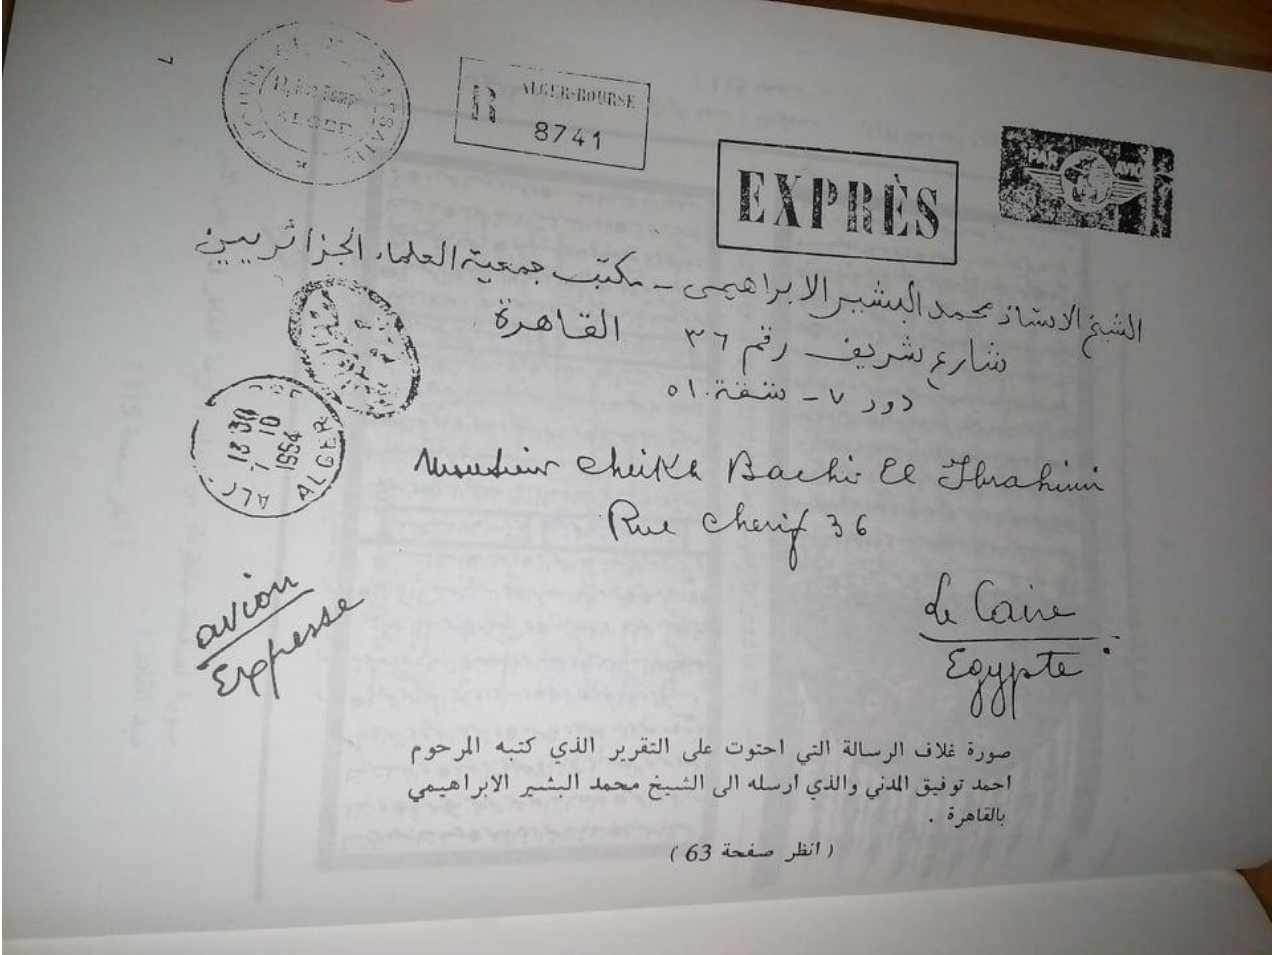 ALGER-BOURSE
R
8741
EXPRÈS
PAR AVION
الشيخ الاستاذ محمد البشير الابراهيمى - مكتب جمعية العلماء الجزائريين
شارع شريف رقم ٣٦ القاهرة
دور ٧ - شقة ٥١
Monsieur Cheikh Bachir El Ibrahimi
Rue Cherif 36
13 30
10
1954
ALGER
avion
Expresse
Le Caire
Egypte
صورة غلاف الرسالة التي احتوت على التقرير الذي كتبه المرحوم
احمد توفيق المدني والذي ارسله الى الشيخ محمد البشير الابراهيمي
بالقاهرة .
( انظر صفحة 63 )